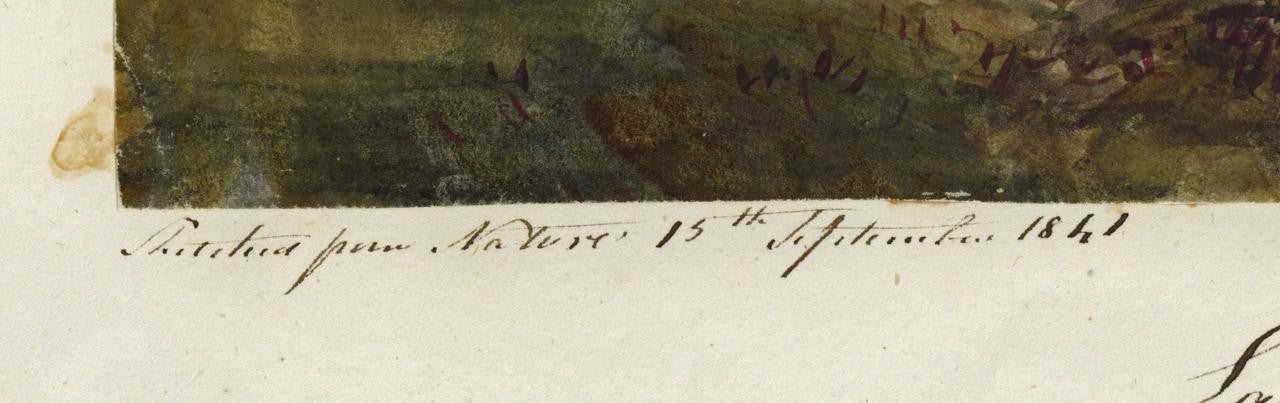 Sketched from Nature 15th September 1841